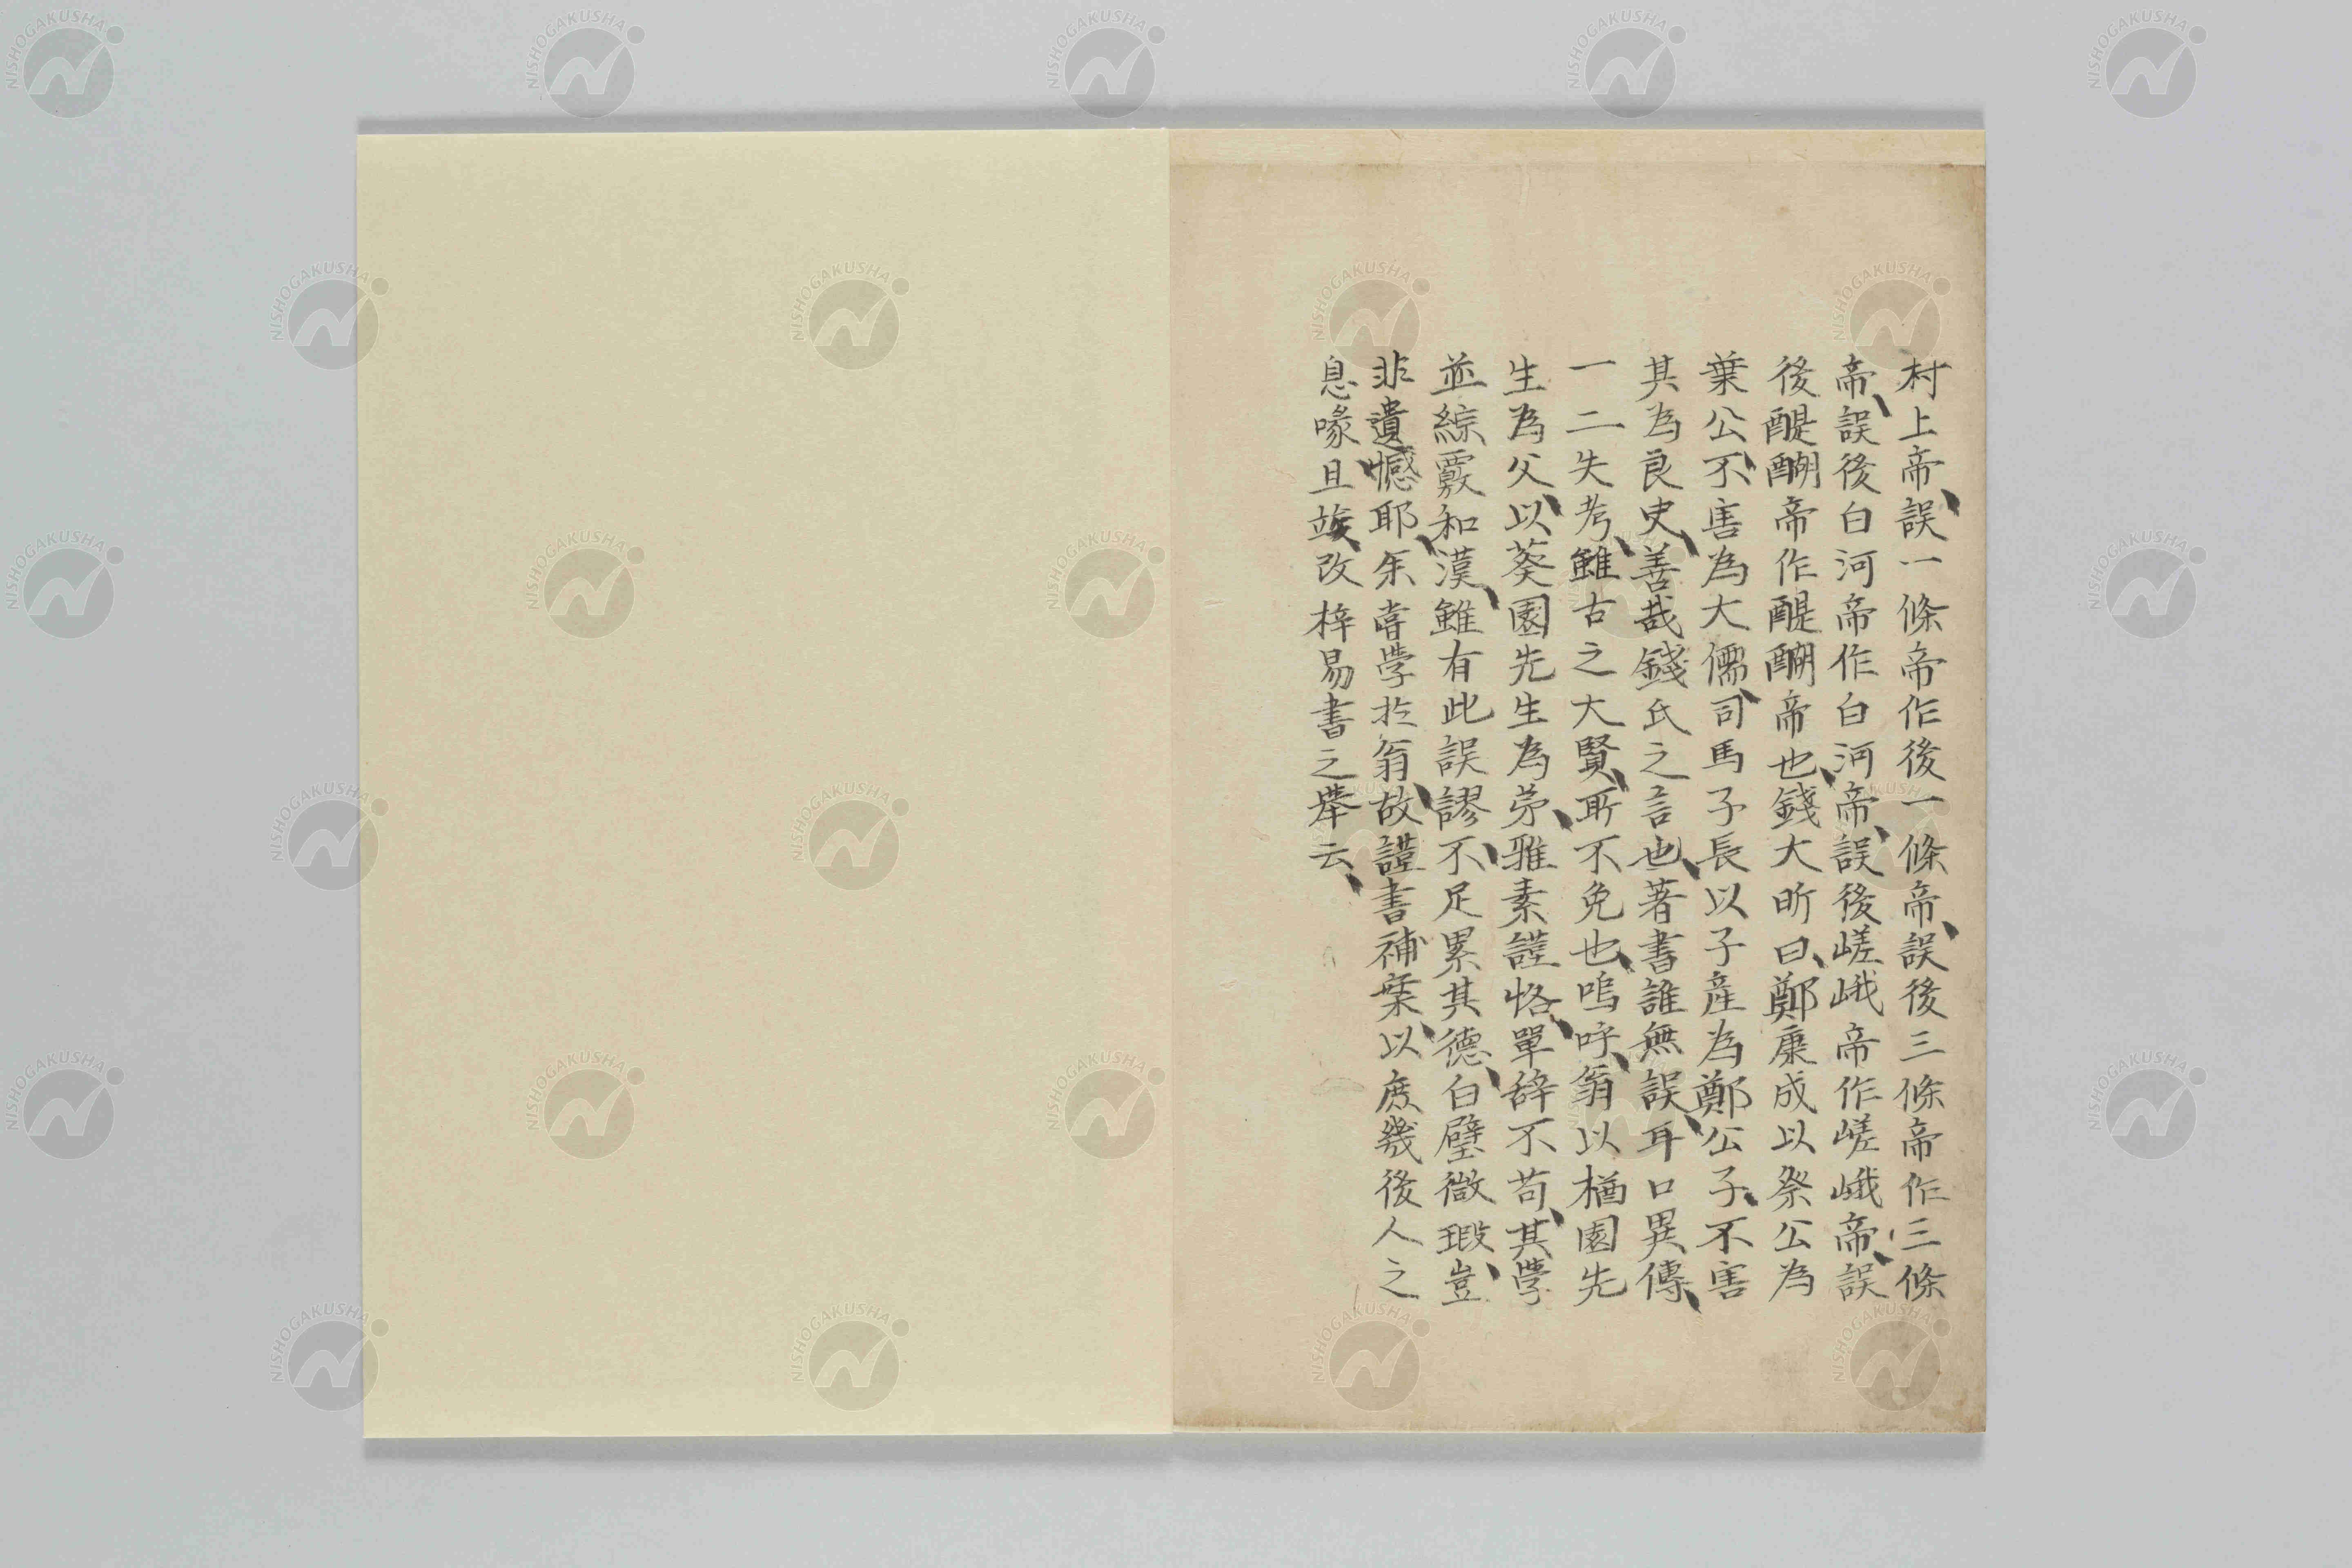 村上帝、誤一條帝作後一條帝、誤後三條帝作三條
帝、誤後白河帝作白河帝、誤後嵯峨帝作嵯峨帝、誤
後醍醐帝作醍醐帝也、錢大昕曰、鄭康成以祭公為
葉公、不害為大儒、司馬子長以子產為鄭公子、不害
其為良史、善哉錢氏之言也、著書誰無誤、耳口異傳、
一二失考、雖古之大賢、所不免也、嗚呼、翁以楢園先
生為父、以葵園先生為弟、雅素謹恪、單辞不苟、其學
並綜覈和漢、雖有此誤謬、不足累其德、白璧微瑕、豈
非遺憾耶、余嘗學於翁、故謹書補棄、以庶幾後人之
息喙、且竢改梓易書之舉云、
NISHOGAKUSHA